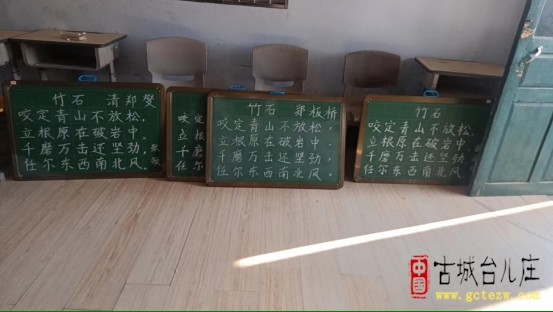 竹石 清郑燮
咬定青山不放松,
立根原在破岩中,
千磨万击还坚劲,
任尔东西南北风。
咬定
立根
千磨
任尔
竹石 郑板桥
咬定青山不放松,
立根原在破岩中
千磨万击还坚劲,
任尔东西南北风。
竹石
咬定青山不放松,
立根原在破岩中,
千磨万击还坚劲
任尔东西南北风
中国
古城台儿庄
www.gctezw.com